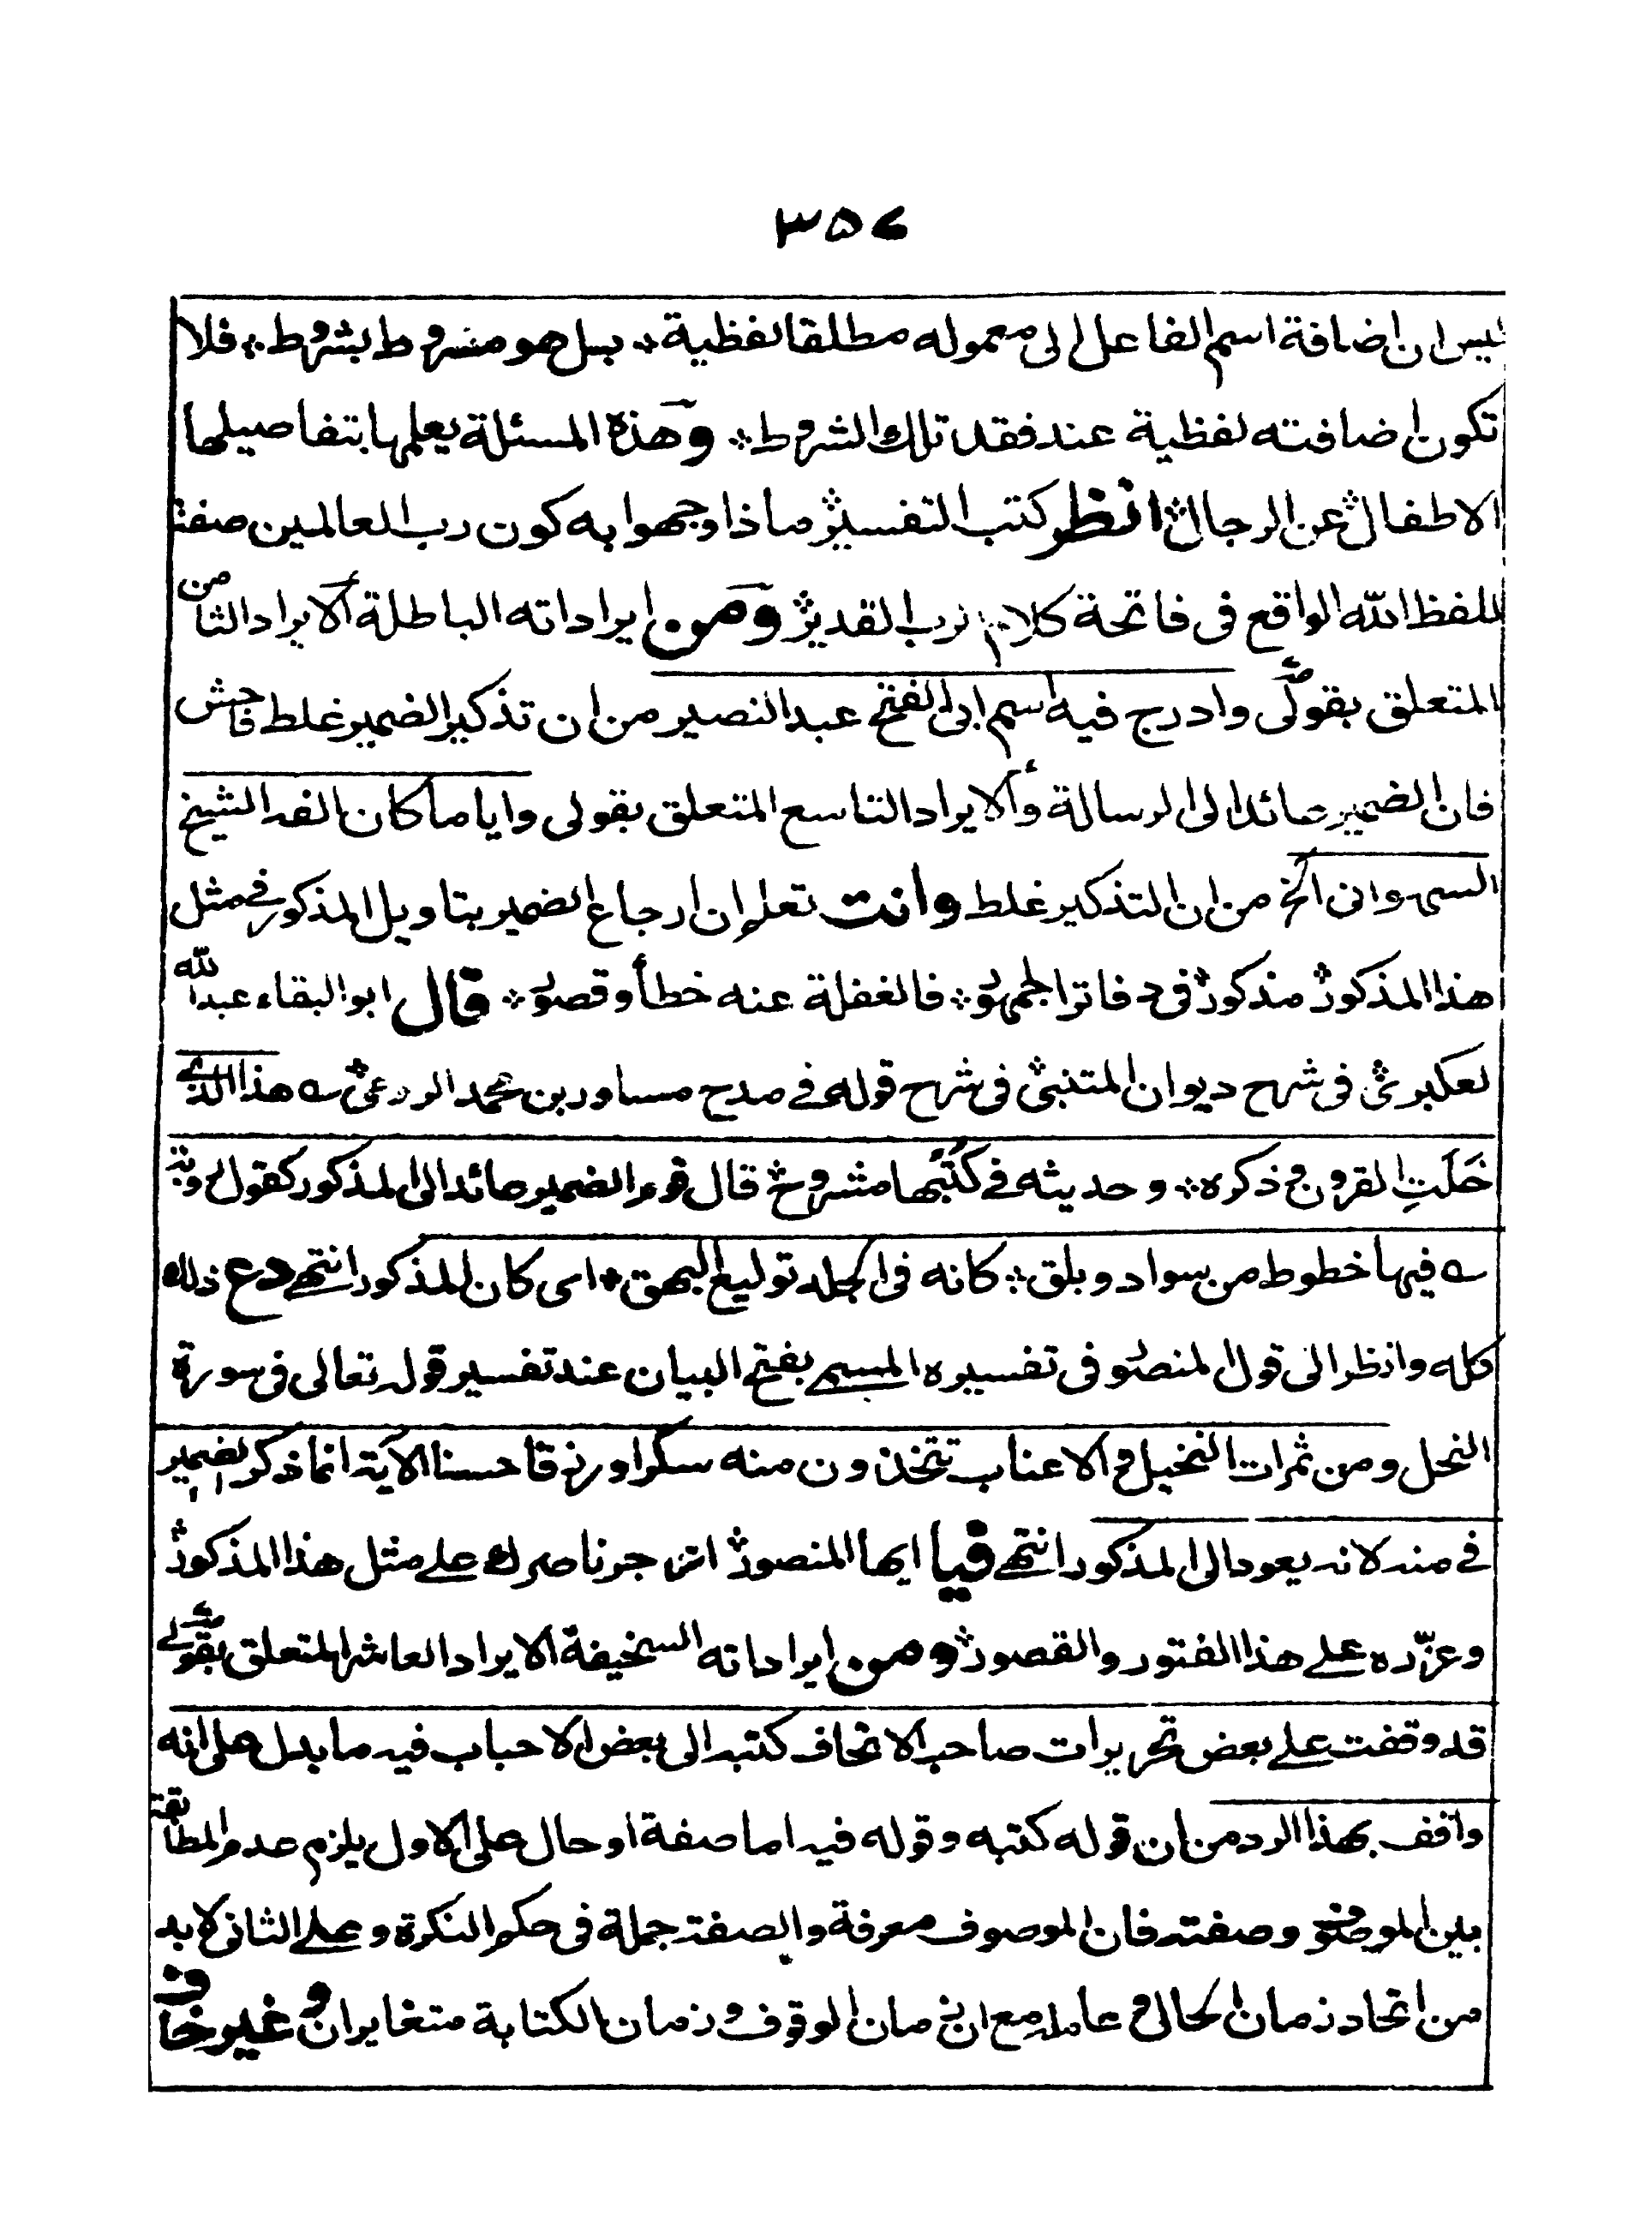 ٣٥٧
ليس ان اضافة اسم الفاعل الى معموله مطلقا لفظية ؞ بل هو مشروط بشروط ؞ فلا
تكون اضافته لفظية عند فقد تلك الشروط ؞ وهذه المسئلة يعلمها بتفاصيلها
الاطفال ؞ عن الرجال ؞ انظر كتب التفسير ؞ ماذا وجهوا به كون رب العالمين صفة
للفظ الله الواقع فى فاتحة كلام رب القدير ؞ ومن ايراداته الباطلة الايراد الثامن
المتعلق بقولى وادرج فيه اسم ابى الفتح عبد النصير من ان تذكير الضمير غلط فاحش
فان الضمير عائد الى الرسالة والايراد التاسع المتعلق بقولى واياما كان الفه الشيخ
السهسوانى الخ من ان التذكير غلط وانت تعلم ان ارجاع الضمير بتاويل المذكور فى مثل
هذا المذكور ؞ مذكور ؞ فى دفاتر الجمهور ؞ فالغفلة عنه خطأ وقصور ؞ قال ابو البقاء عبد الله
لعكبرى ؞ فى شرح ديوان المتنبى ؞ فى شرح قوله فى مدح مساور بن محمد الرومى ؞ ؎ هذا الذى
خَلَتِ القرون و ذكره ؞ وحديثه فى كُتُبها مشروح ؞ قال قوم الضمير عائد الى المذكور كقول روبة
؎ فيها خطوط من سواد و بلق ؞ كانه فى الجلد توليع البهق ؞ اى كان المذكور انتهى دع ذلك
كله وانظر الى قول المنصور فى تفسيره المسمى بفتح البيان عند تفسير قوله تعالى فى سورة
النحل ومن ثمرات النخيل والاعناب تتخذون منه سكرا ورزقا حسنا الآية انما ذكر الضمير
فى منه لانه يعود الى المذكور انتهى فيا ايها المنصور ؞ ازجر ناصرك على مثل هذا المذكور ؞
وعزّره على هذا الفتور والقصور ؞ ومن ايراداته السخيفة الايراد العاشر المتعلق بقولى
قد وقفت على بعض تحريرات صاحب الاتحاف كتبه الى بعض الاحباب فيه ما يدل على انه
واقف بهذا الرد من ان قوله كتبه وقوله فيه اما صفة او حال على الاول يلزم عدم المطابقة
بين الموصوف وصفته فان الموصوف معرفة والصفة جملة فى حكم النكرة وعلى الثانى لابد
من اتحاد زمان الحال و عامله مع ان زمان الوقوف و زمان الكتابة متغايران وغير خاف